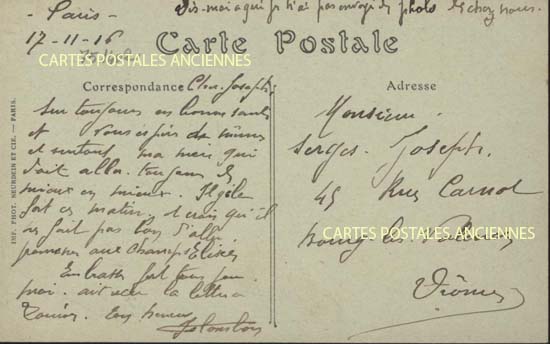 - Paris -
Dis-moi a qui je n'ai pas envoyé de photo de chez nous.
17-11-16
Carte Postale
CARTES POSTALES ANCIENNES
Correspondance
Cher Joseph
Suis toujours en bonne santé
et vous espère de même
et surtout ma mere qui
doit aller toujours de
mieux en mieux. Il gèle
fort ce matin, je crois qu'il
ne fait pas bon d'aller
promener aux Champs Elisées
Embrasse fort tous pour
moi.
la lettre
IMP. PHOT. NEURDEIN ET CIE. — PARIS.
Adresse
Monsieur
Serges Joseph
45 Rue Carnot
CARTES POSTALES ANCIENNES
Bourg les Valence
Drôme